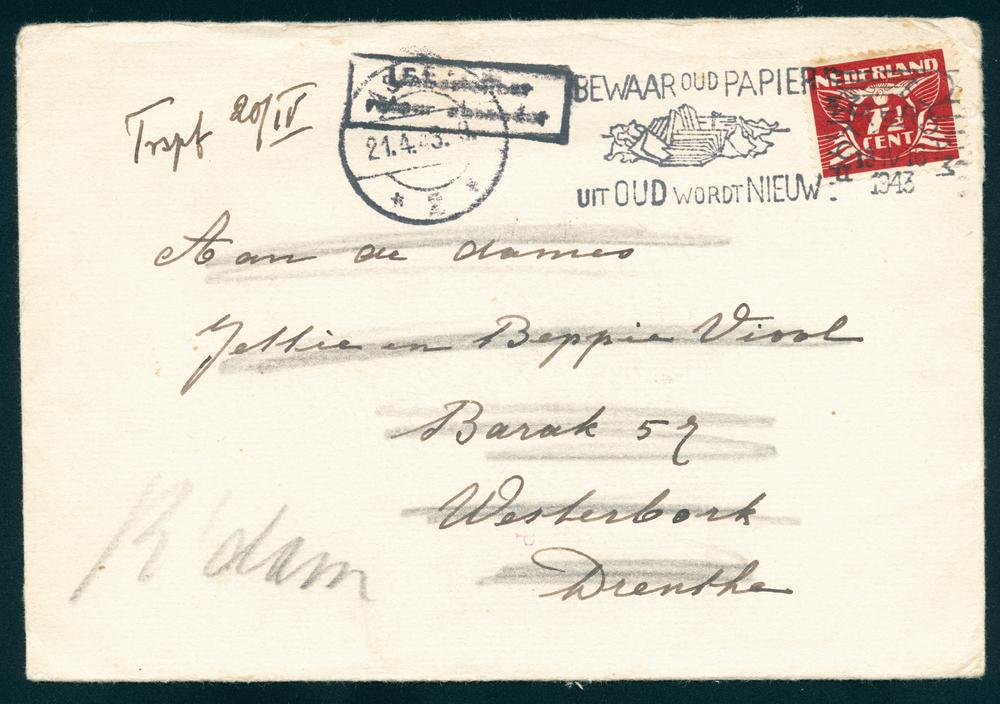 Trspt 20/IV
21.4.43.
* 2 *
BEWAAR OUD PAPIER
UIT OUD WORDT NIEUW
NEDERLAND
7½
CENT
1943
Aan de dames
Jettie en Beppie Viool
Barak 57
Westerbork
Drenthe
R'dam